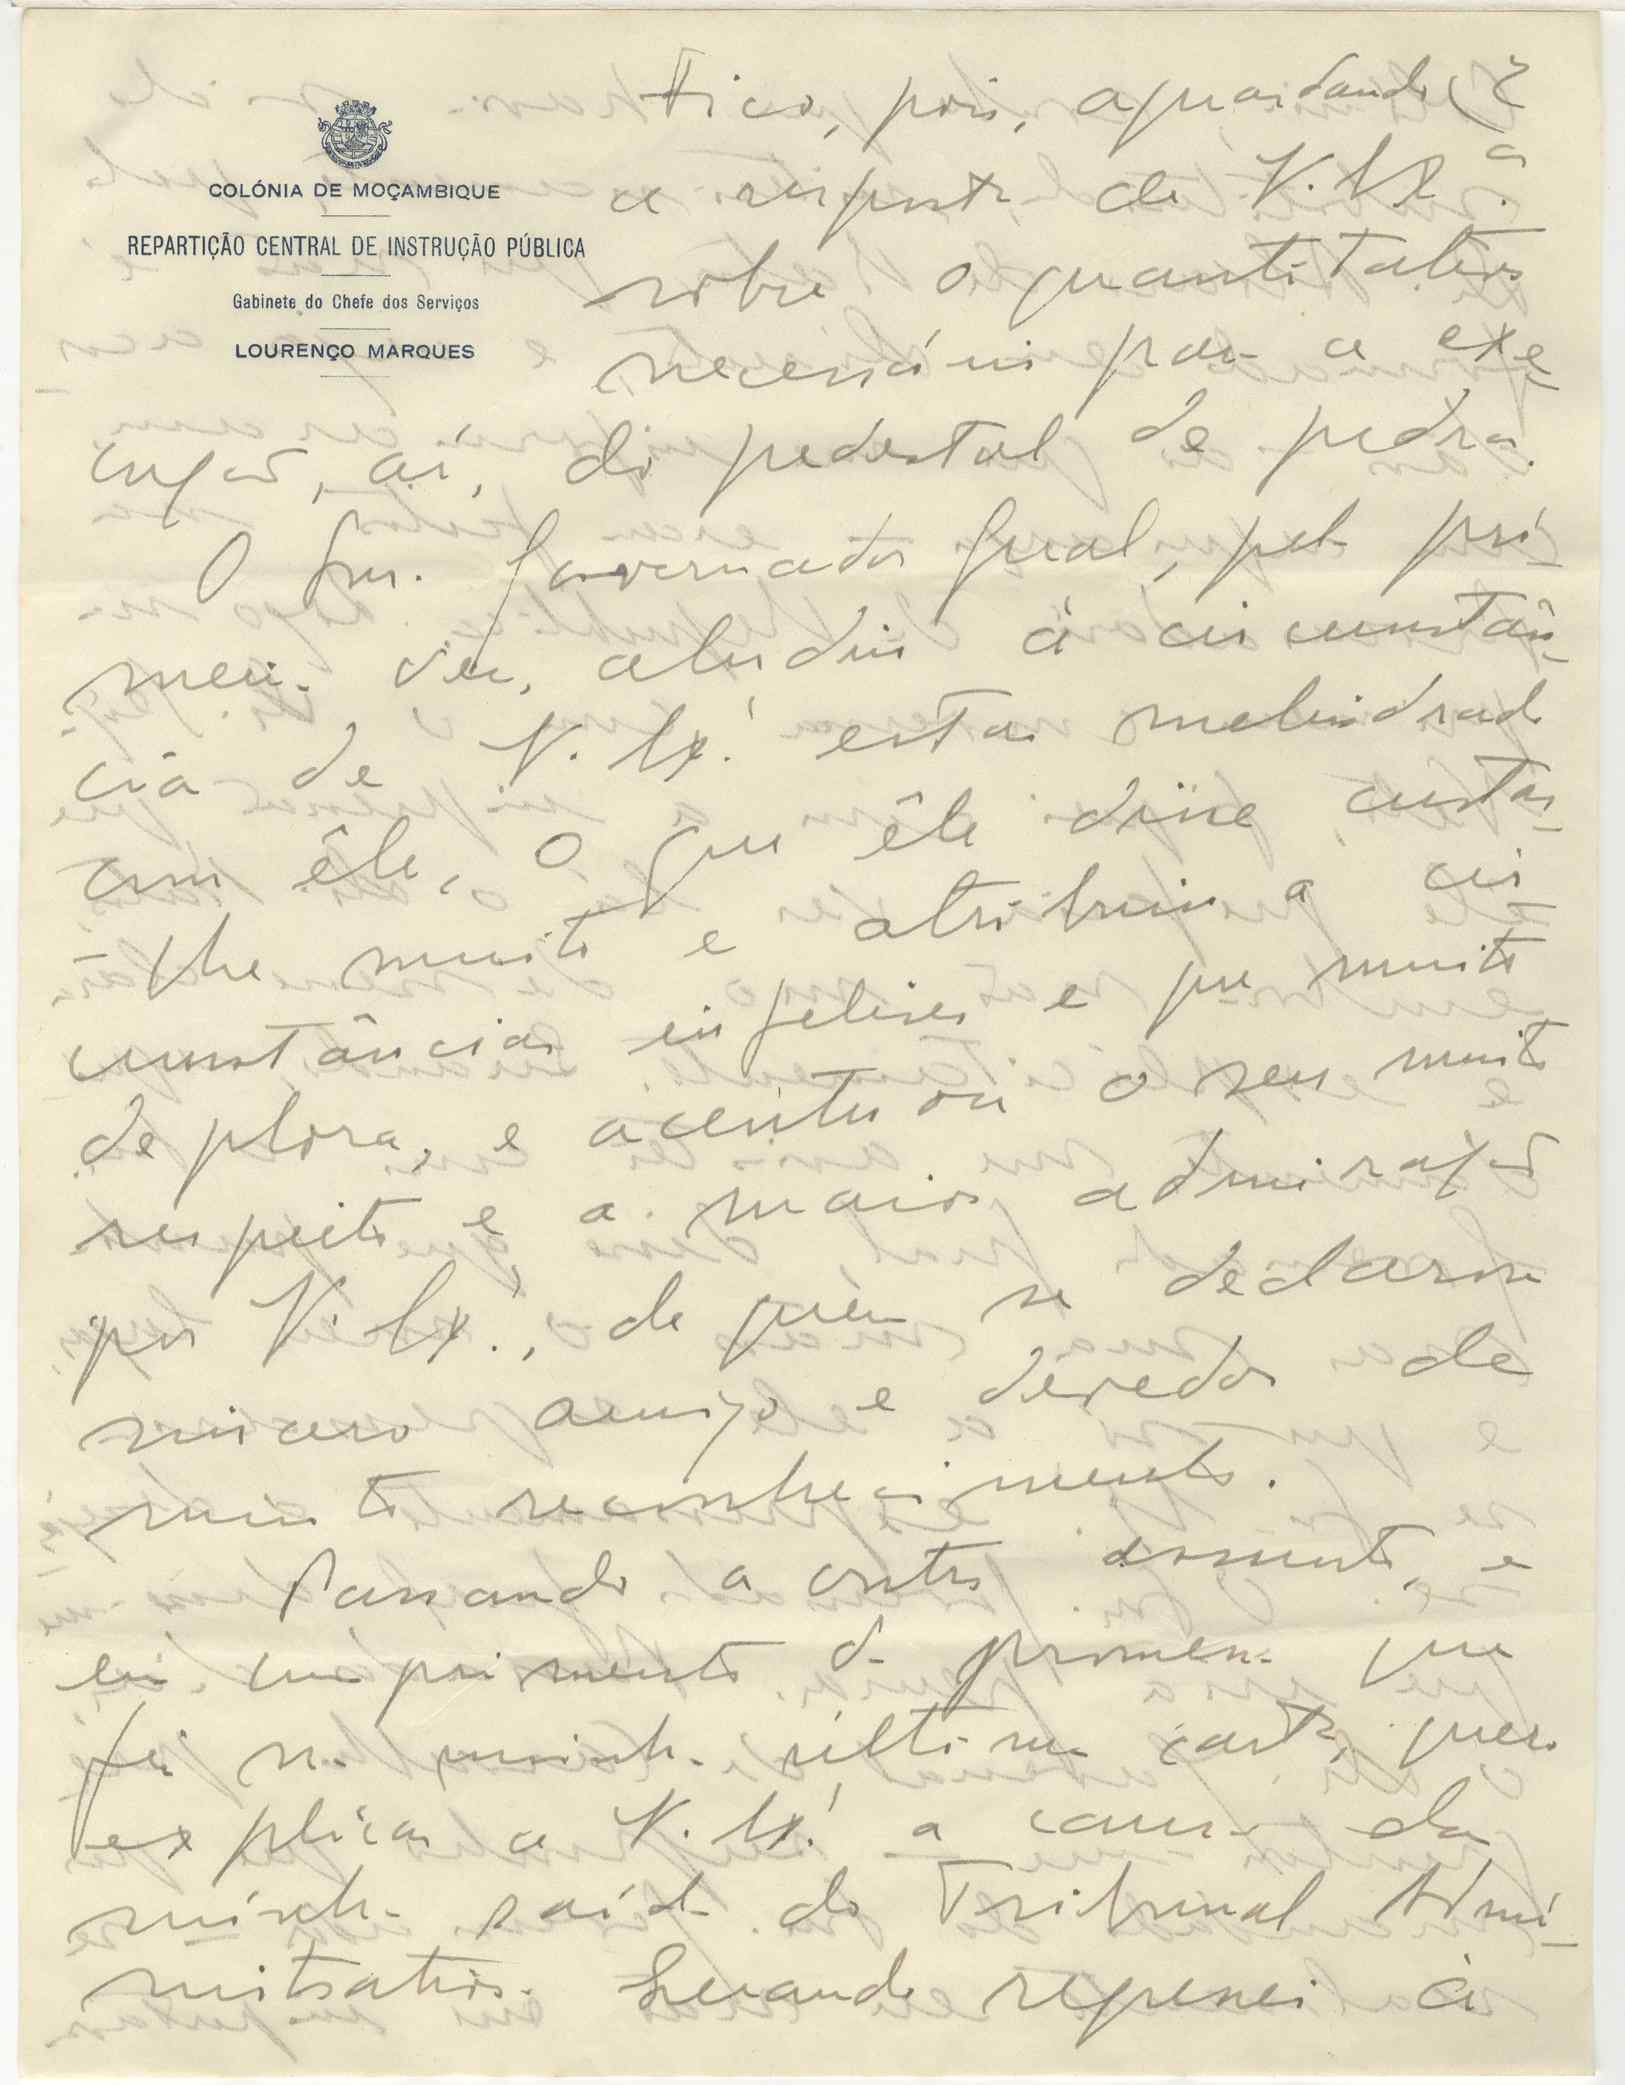 COLÓNIA DE MOÇAMBIQUE
REPARTIÇÃO CENTRAL DE INSTRUÇÃO PÚBLICA
Gabinete do Chefe dos Serviços
LOURENÇO MARQUES
2
Fico, pois, aguardando
a resposta de V. Ex.ª
sôbre o quantitativo
necessário para a exe-
cução, aí, do pedestal de pedra.
O Snr. Governador Geral, pela pri-
meira vez, aludiu à circunstân-
cia de V. Ex.ª estar melindrado
com êle, o que êle disse custar-
-lhe muito e atribuiu a cir-
cunstâncias infelizes e que muito
deplora, e acentuou o seu muito
respeito e a maior admiração
por V. Ex.ª, de quem se declarou
sincero amigo e devedor de
muito reconhecimento.
Passando a outro assunto, e
em cumprimento da promessa que
fiz na minha última carta, quero
explicar a V. Ex.ª a causa da
minha saída do Tribunal Admi-
nistrativo. Quando regressei à